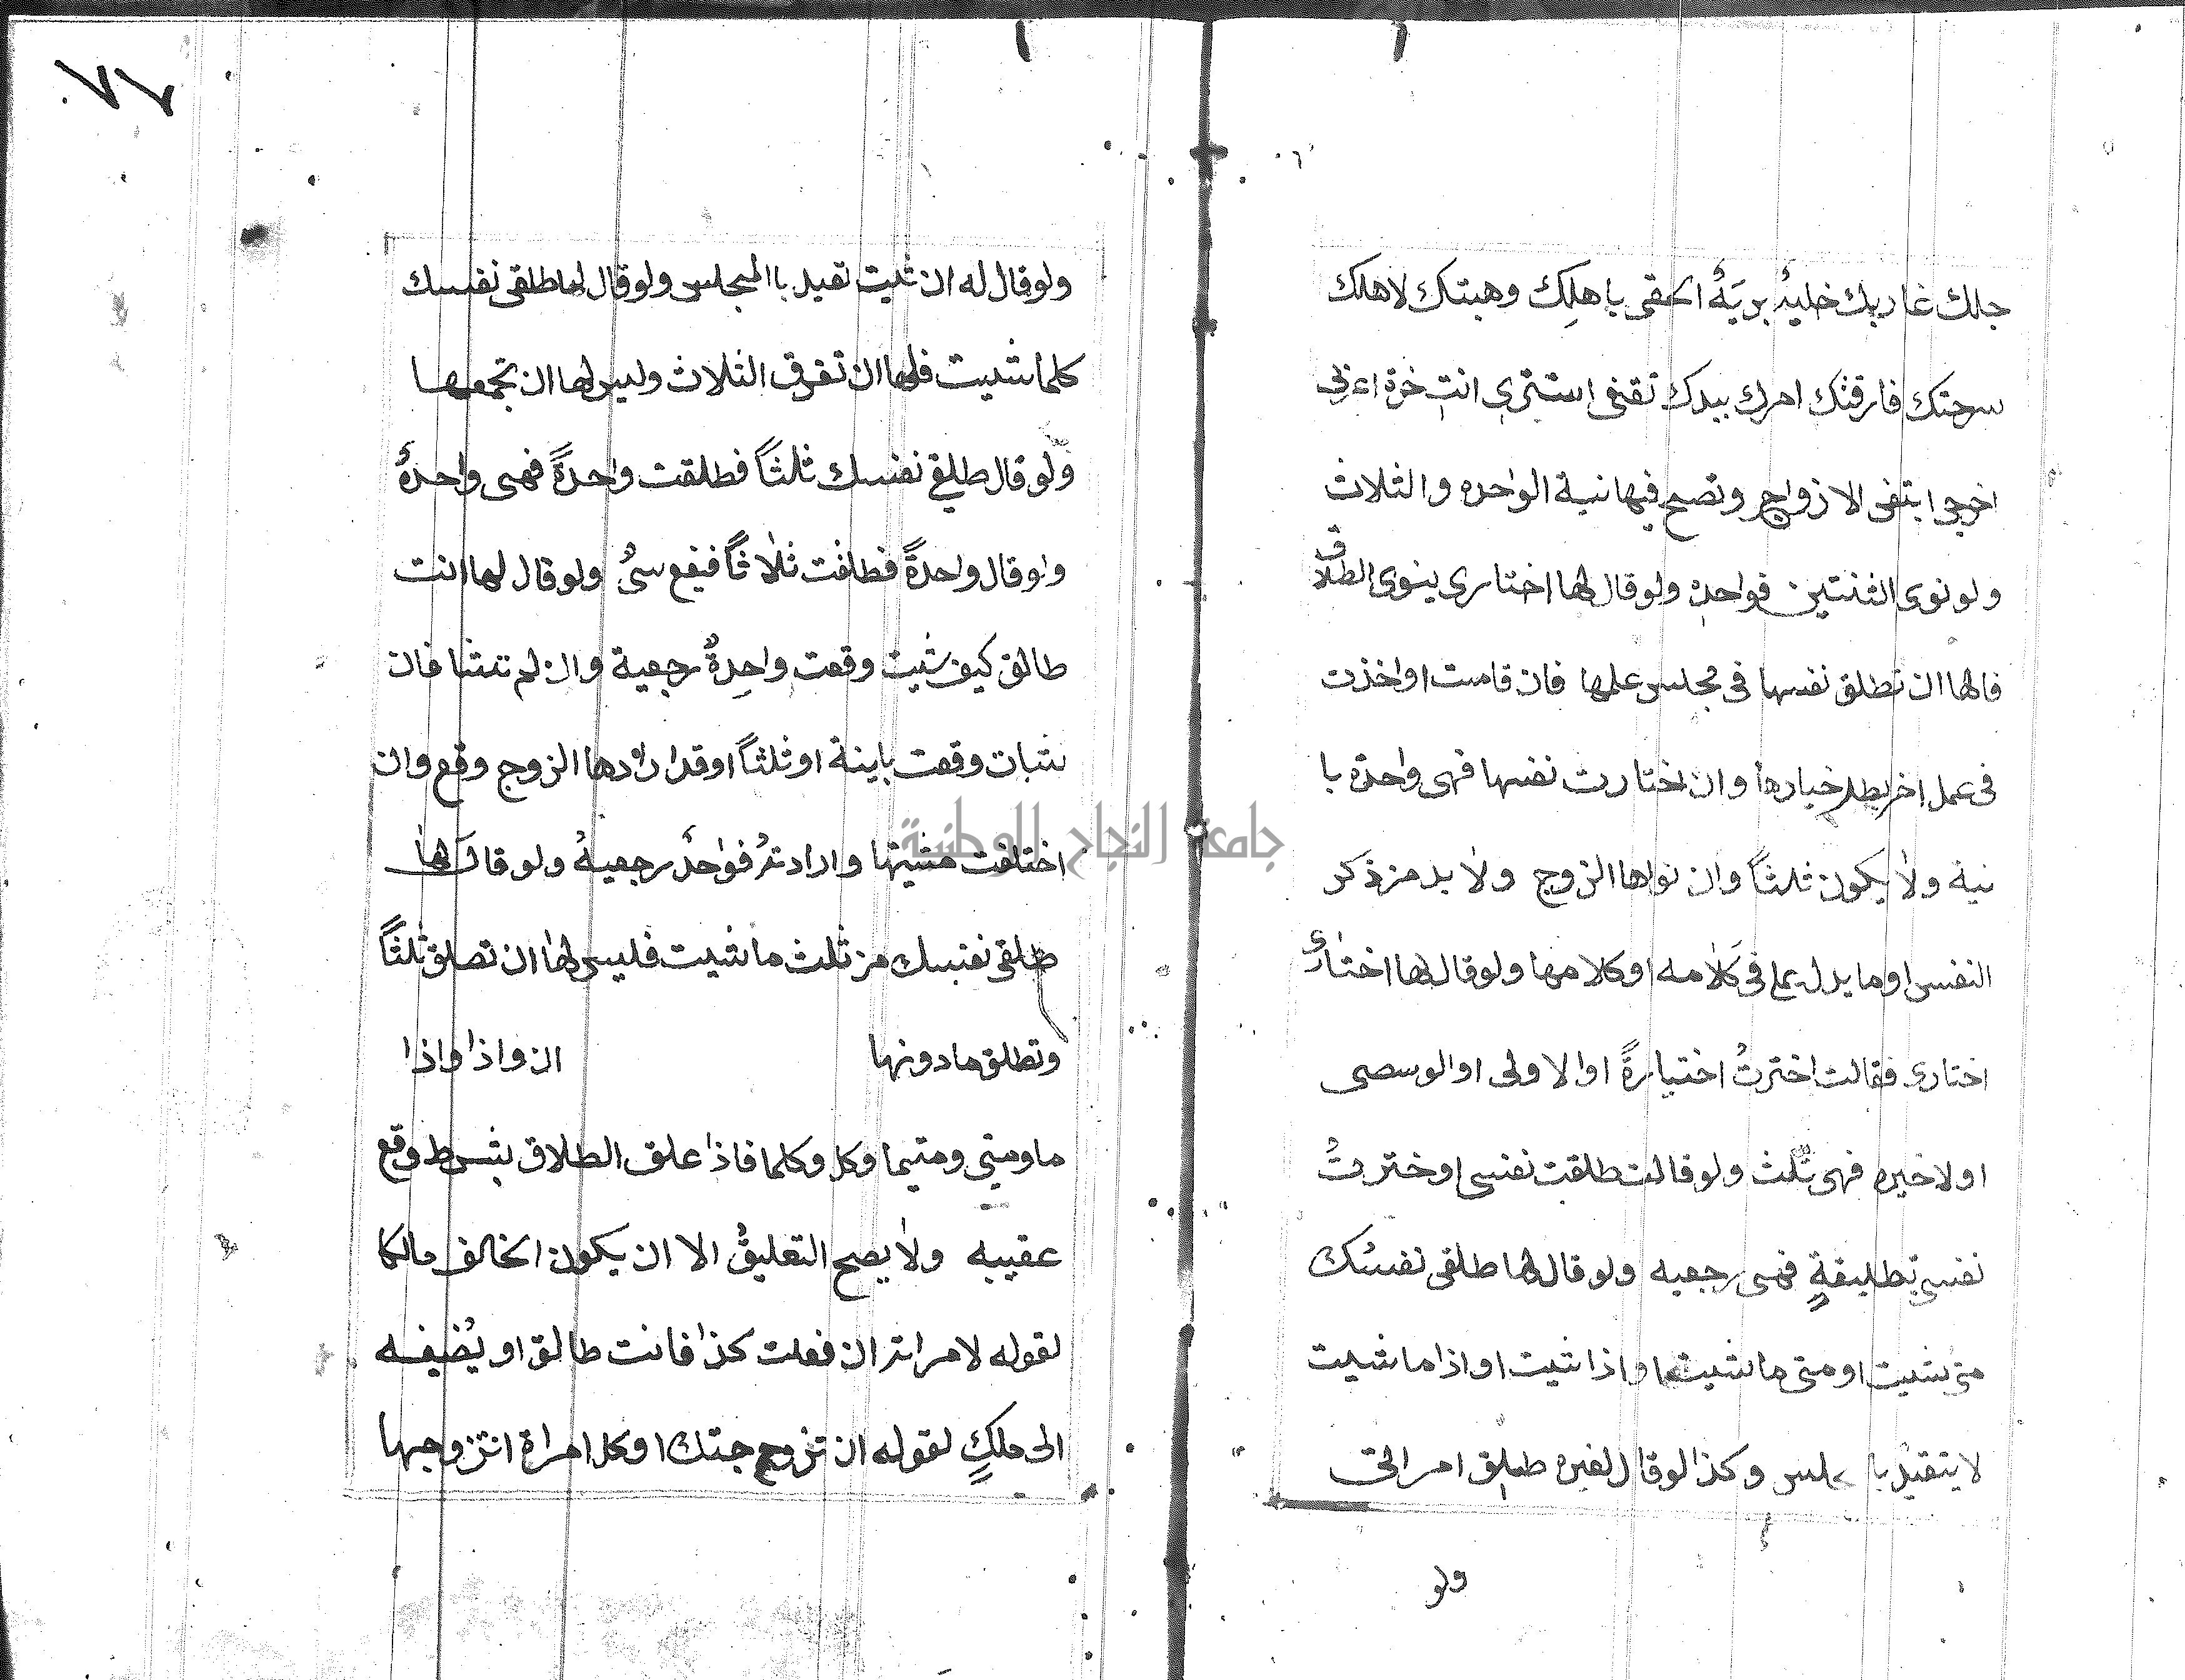 جلك غاربك خليةٌ بريَةٌ الحقى باهلِك وهبتك لاهلك
سرحتك فارقتك امرك بيدك تقنعى استترى انتِ حرة اغربى
اخرجى ابتغى الازواج وتصح فيها نية الواحده والثلاث
ولو نوى الثنتين فواحدة ولو قال لها اختارى ينوى الطلاق
فالها ان تطلق نفسها فى مجلس علمها فان قامت او اخذت
فى عمل اخر بطل خيارها وان اختارت نفسها فهى واحدة با
نية ولا يكون ثلثاً وان نواها الزوج ولا بد من ذكر
النفس او ما يدل على فى كلامه او كلامها ولو قال لها اختارى
اختارى فقالت اخترتُ اختيارةً او الاولى او الوسصى
او لاخيره فهى ثلث ولو قالت طلقت نفسى او ختر تُ
نفسى بتطليقةٍ فهى رجعيه ولو قال لها طلقى نفسك
متى شيت او متى ما شيت او اذا شيت او اذا ما شيت
لا يتقيد با وكذا لو قال لغيره طلق امراتى
ولو
٧٧
ولو قال له ان شيت تقيد با المجلس ولو قال لها طلقى نفسك
كلما شيت فلها ان تفرق الثلاث وليس لها ان تجمعها
ولو قال طلقى نفسك ثلثاً فطلقت واحدةً فهى واحدةٌ
ولو قال واحدةً فطلقت ثلاثاً فيقع سىٌ ولو قال لها انت
طالق كيف شيت وقعت واحِدةٌ رجعية وان لم تشا فان
شات وقعت باينة او ثلثاً او قد ارادها الزوج وقع وان
اختلفت مشيتها وارادته فواحدٌ رجعيةٌ ولو قال لها
طلقى نفسك من ثلث ما شيت فليس لها ان تصلق ثلثاً
وتطلق ما دونها ان واذا واذا
ما ومتى ومتيما وكل وكلما فاذا علق الطلاق بشرط وقع
عقيبه ولا يصح التعليقُ الا ان يكون الحالف مالكا
لقوله لامراته ان فعلت كذا فانت طالق او يُضيفه
الى ملكٍ لقوله ان تزوجتك او كل امراة اتزوجها
جامعة النجاح الوطنية